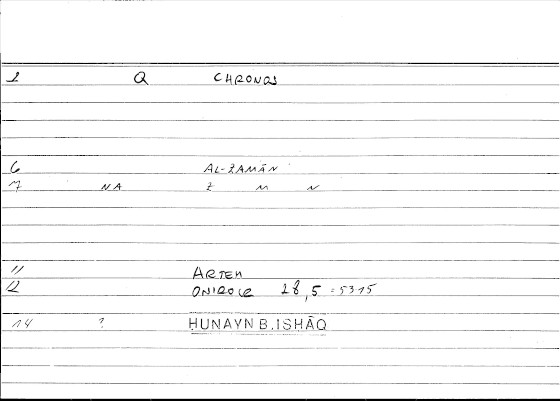 1 Q CHRONOS
6 AL-ZAMĀN
7 NA Z M N
11 ARTEM
12 ONIROCR 28,5 = 5315
14 ? ḤUNAYN B. ISḤĀQ